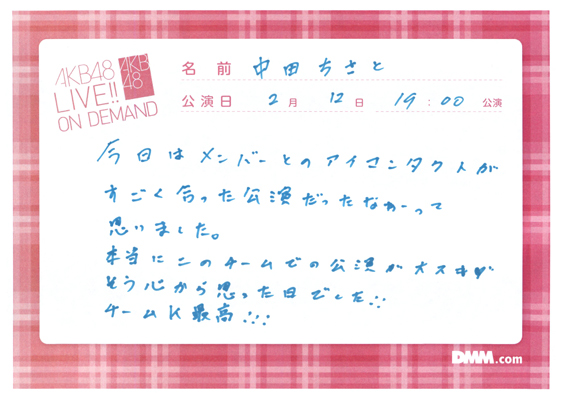 AKB48
LIVE!!
ON DEMAND
AKB
48
名前 中田ちさと
公演日 2月 12日 19:00 公演
今日はメンバーとのアイコンタクトが
すごく合った公演だったなぁーって
思いました。
本当にこのチームでの公演が大スキ
そう心から思った日でした!!
チームK最高!!!
DMM.com